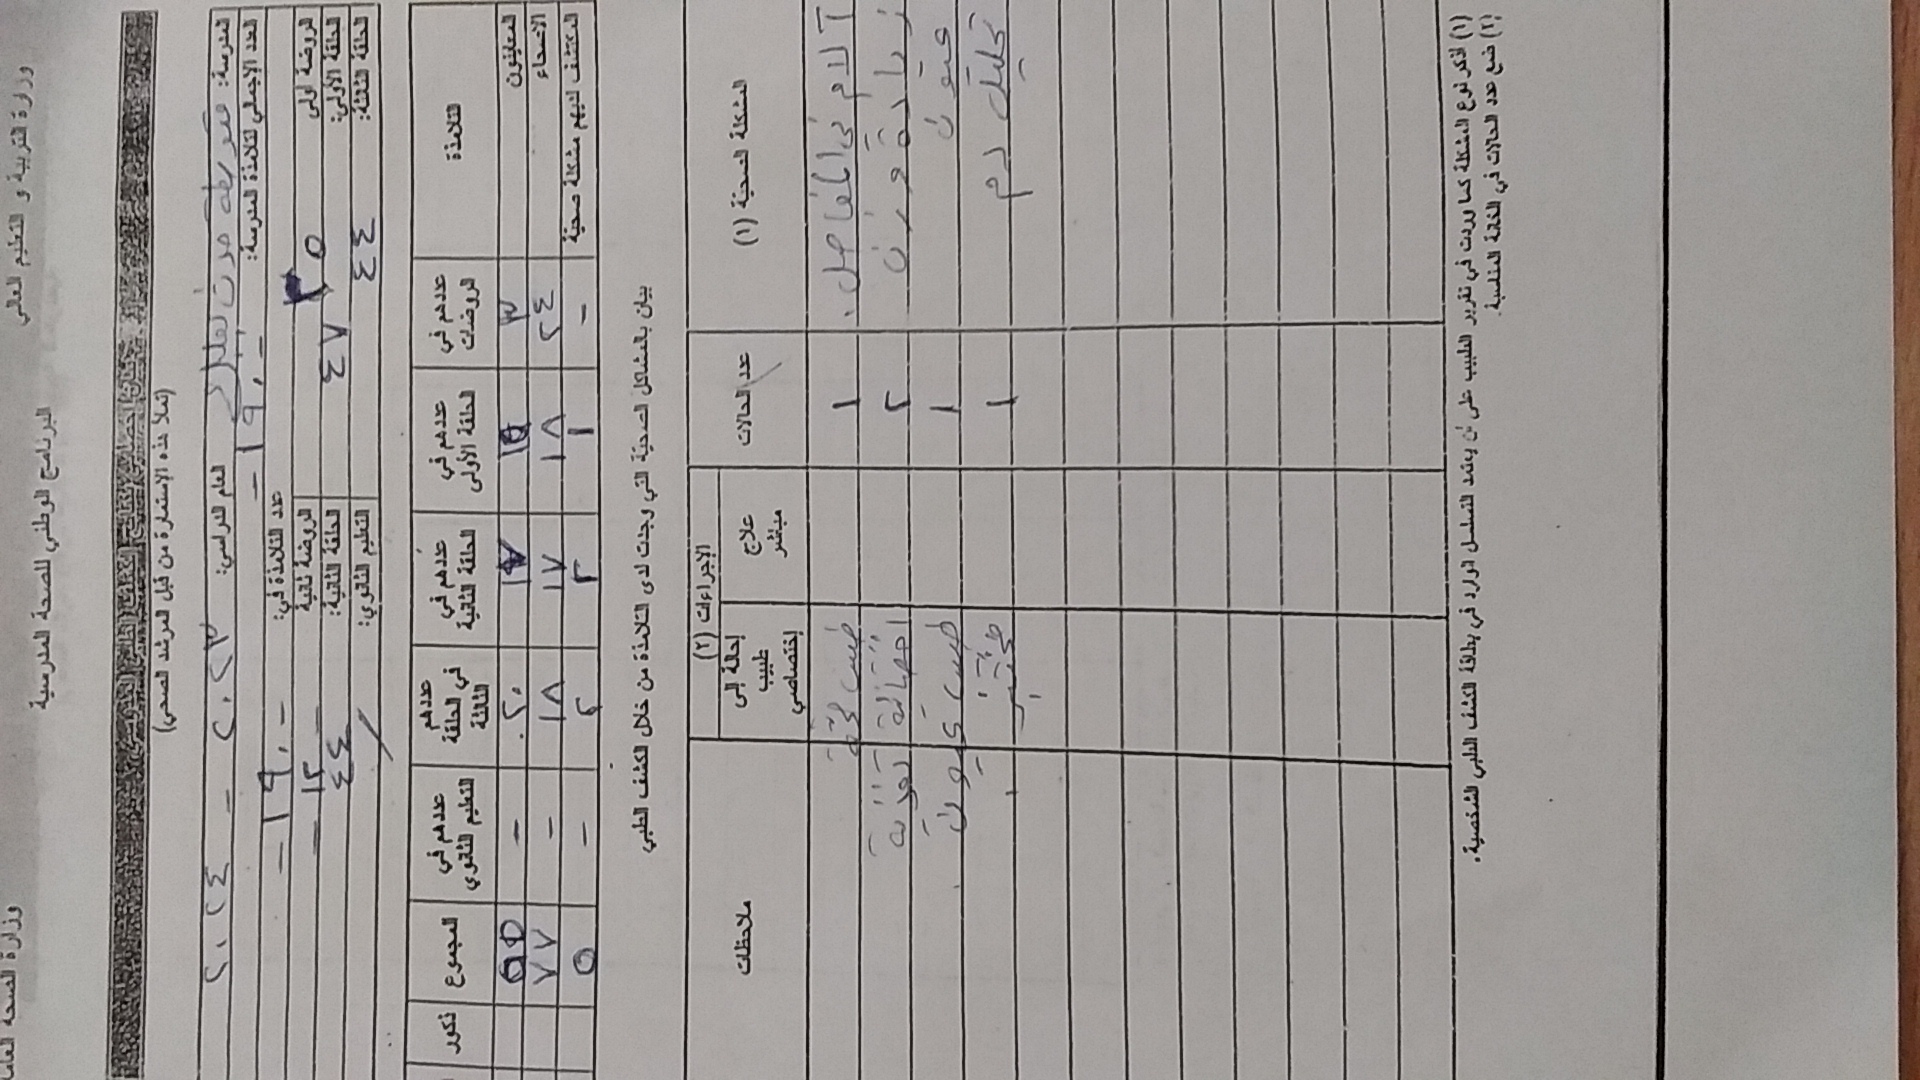 وزارة التربية و التعليم العالي
البرنامج الوطني للصحة المدرسية
وزارة الصحة العامة
(تملأ هذه الإستمارة من قبل المرشد الصحي)
المدرسة: متوسطة العام الدراسي: ٢٠٢٣ - ٢٠٢٤
العدد الإجمالي لتلامذة المدرسة: - ١٩٠ -
عدد التلامذة في: - ١٩٠ -
الروضة أولى ٢٥ الروضة ثانية - ١٢ -
الحلقة الأولى: ٤٧٨ الحلقة الثانية: ٤٤
الحلقة الثالثة: ٤٤ التعليم الثانوي: /
التلامذة عددهم في الروضات عددهم في الحلقة الأولى عددهم في الحلقة الثانية عددهم في الحلقة الثالثة عددهم في التعليم الثانوي المجموع ذكور
المعاينون ٣ ١٥ ١٧ ٢٠ - ٥٥
الأصحاء ٢٤ ١٨ ١٧ ١٨ - ٧٧
المكتشف لديهم مشكلة صحية - ١ ٢ ٢ - ٥
بيان بالمشاكل الصحية التي وجدت لدى التلامذة من خلال الكشف الطبي
المشكلة الصحية (١) عدد الحالات الإجراءات (٢) ملاحظات
علاج مباشر إحالة إلى طبيب إختصاصي
آلام في المفاصل. ١ طبيب
زيادة وزن ٢ اخصائية تغذية
عيون ١ طبيب عيون
تحليل دم ١
(١) أذكر نوع المشكلة كما وردت في تقرير الطبيب على أن يعتمد التسلسل الوارد في بطاقة الكشف الطبي الشخصية.
(٢) ضع عدد الحالات في الخانة المناسبة.